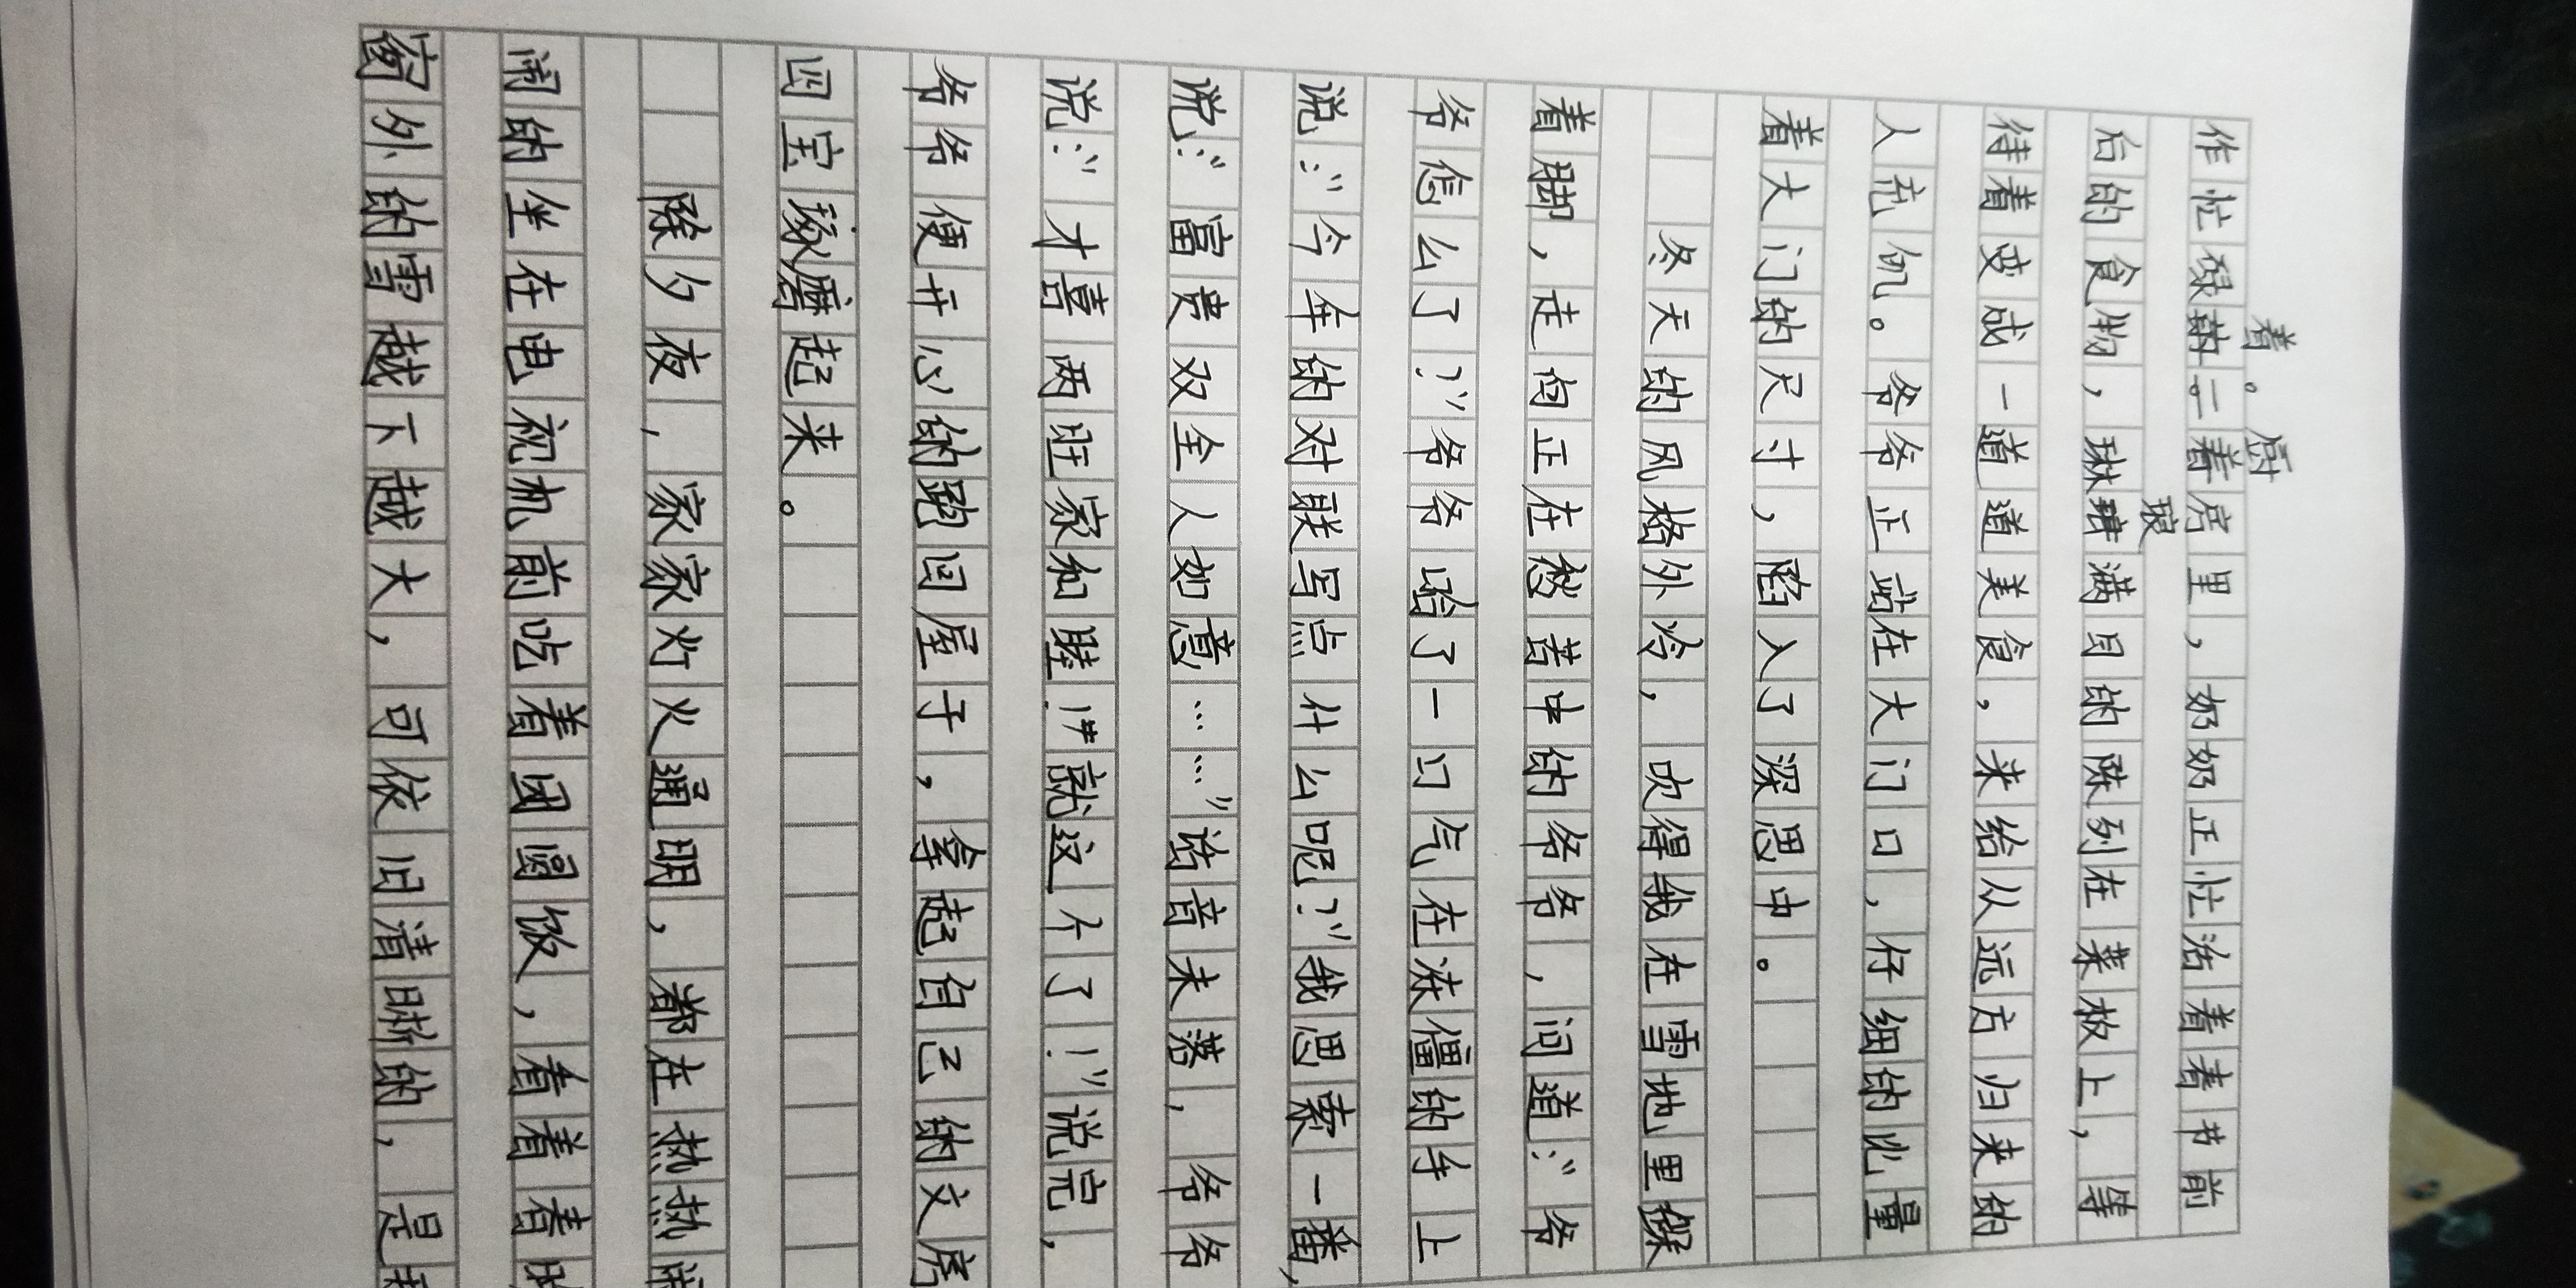 作忙碌着。厨房里，奶奶正忙活着着节前
后的食物，琳琅满目的陈列在菜板上，等
待着变成一道道美食，来给从远方归来的
人充饥。爷爷正站在大门口，仔细的比量
着大门的尺寸，陷入了深思中。
冬天的风格外冷，吹得我在雪地里
着脚，走向正在愁苦中的爷爷，问道：“爷
爷怎么了？”爷爷哈了一口气在冻僵的手上
说：“今年的对联写点什么呢？”我思索一番，
说：“富贵双全人如意……”话音未落，爷爷
说：“才喜两旺家和睦！”就这个了！”说完，
爷爷便开心的跑回屋子，拿起自己的文房
四宝琢磨起来。
除夕夜，家家灯火通明，都在热热闹
闹的坐在电视机前吃着团圆饭，看着春
窗外的雪越下越大，可依旧清晰的，是